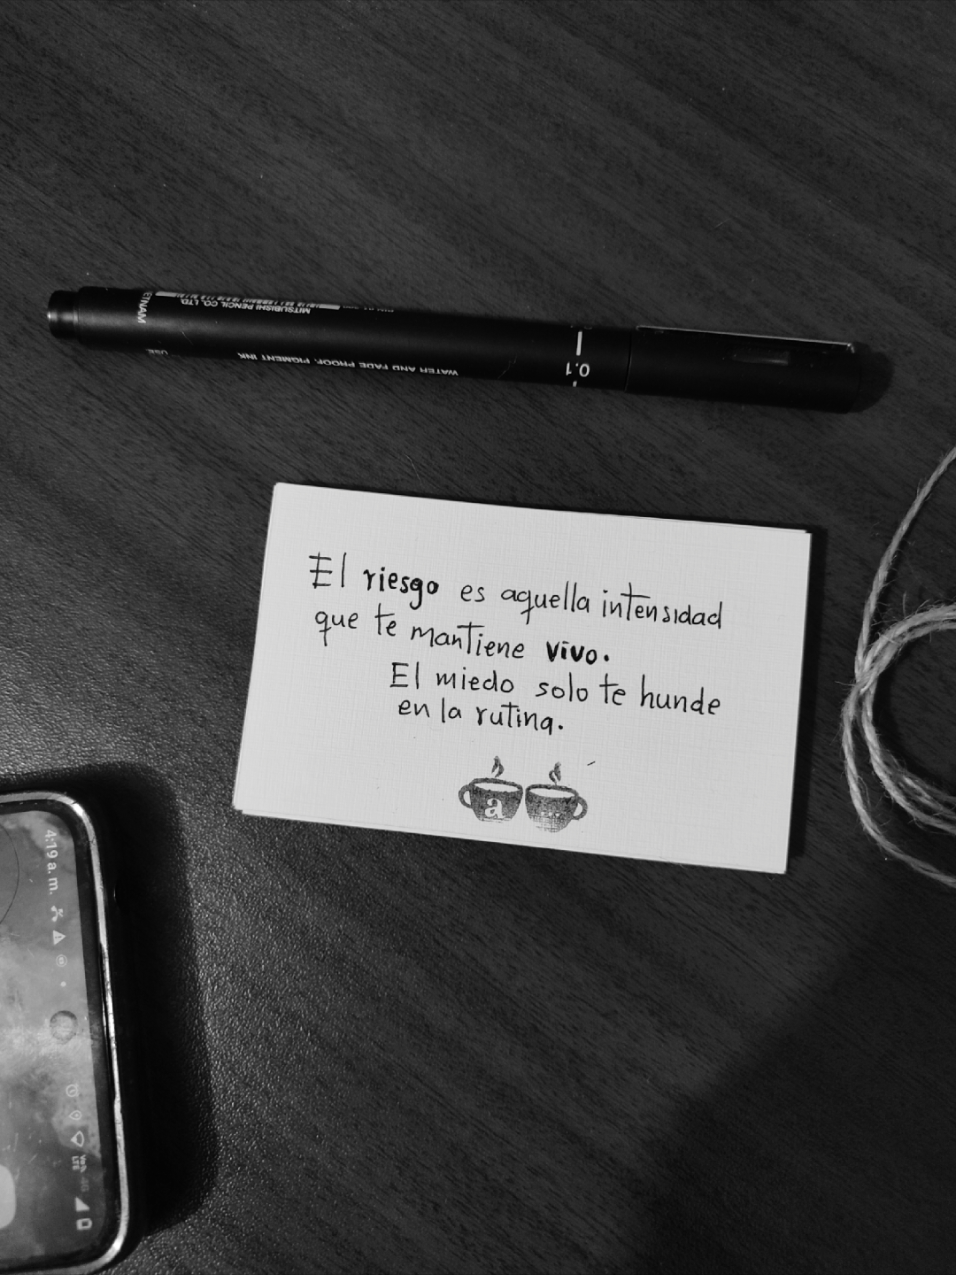 VIETNAM
MITSUBISHI PENCIL CO. LTD.
USE
WATER AND FADE PROOF, PIGMENT INK
0.1
El riesgo es aquella intensidad
que te mantiene vivo.
El miedo solo te hunde
en la rutina.
a
4:19 a.m.
LTE